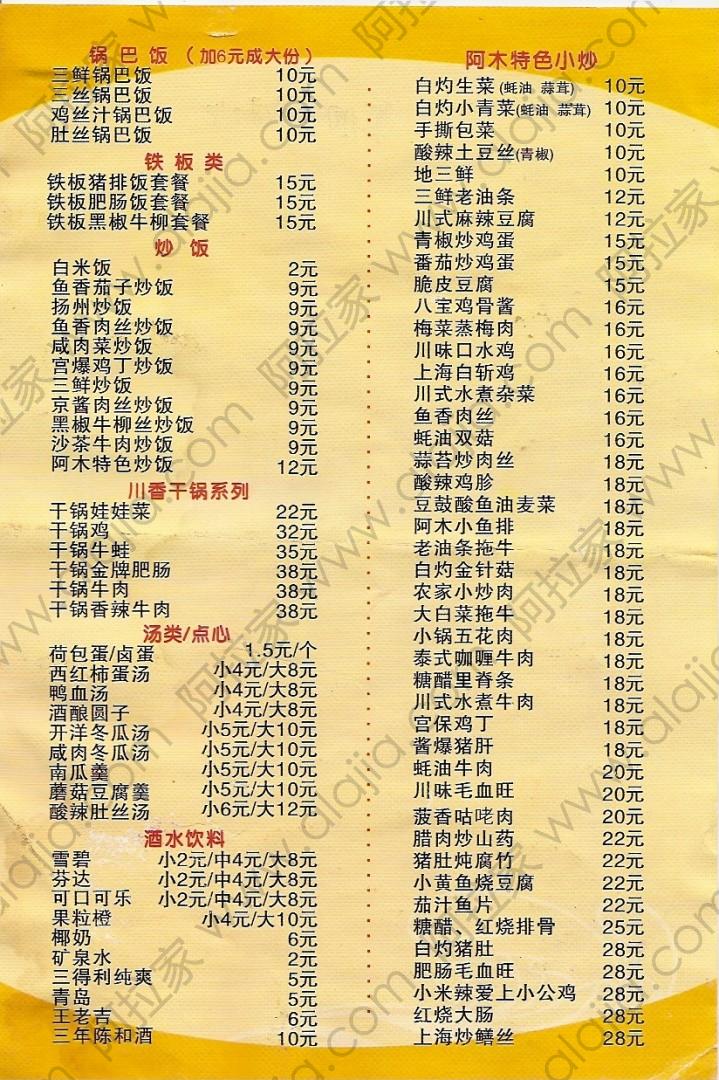 锅巴饭（加6元成大份）
三鲜锅巴饭 10元
三丝锅巴饭 10元
鸡丝汁锅巴饭 10元
肚丝锅巴饭 10元
铁板类
铁板猪排饭套餐 15元
铁板肥肠饭套餐 15元
铁板黑椒牛柳套餐 15元
炒饭
白米饭 2元
鱼香茄子炒饭 9元
扬州炒饭 9元
鱼香肉丝炒饭 9元
咸肉菜炒饭 9元
宫爆鸡丁炒饭 9元
三鲜炒饭 9元
京酱肉丝炒饭 9元
黑椒牛柳丝炒饭 9元
沙茶牛肉炒饭 9元
阿木特色炒饭 12元
川香干锅系列
干锅娃娃菜 22元
干锅鸡 32元
干锅牛蛙 35元
干锅金牌肥肠 38元
干锅牛肉 38元
干锅香辣牛肉 38元
汤类/点心
荷包蛋/卤蛋 1.5元/个
西红柿蛋汤 小4元/大8元
鸭血汤 小4元/大8元
酒酿圆子 小4元/大8元
开洋冬瓜汤 小5元/大10元
咸肉冬瓜汤 小5元/大10元
南瓜羹 小5元/大10元
蘑菇豆腐羹 小5元/大10元
酸辣肚丝汤 小6元/大12元
酒水饮料
雪碧 小2元/中4元/大8元
芬达 小2元/中4元/大8元
可口可乐 小2元/中4元/大8元
果粒橙 小4元/大10元
椰奶 6元
矿泉水 2元
三得利纯爽 5元
青岛 5元
王老吉 6元
三年陈和酒 10元
阿木特色小炒
白灼生菜(蚝油 蒜茸) 10元
白灼小青菜(蚝油 蒜茸) 10元
手撕包菜 10元
酸辣土豆丝(青椒) 10元
地三鲜 10元
三鲜老油条 12元
川式麻辣豆腐 12元
青椒炒鸡蛋 15元
番茄炒鸡蛋 15元
脆皮豆腐 15元
八宝鸡骨酱 16元
梅菜蒸梅肉 16元
川味口水鸡 16元
上海白斩鸡 16元
川式水煮杂菜 16元
鱼香肉丝 16元
蚝油双菇 16元
蒜苔炒肉丝 18元
酸辣鸡胗 18元
豆鼓酸鱼油麦菜 18元
阿木小鱼排 18元
老油条拖牛 18元
白灼金针菇 18元
农家小炒肉 18元
大白菜拖牛 18元
小锅五花肉 18元
泰式咖喱牛肉 18元
糖醋里脊条 18元
川式水煮牛肉 18元
宫保鸡丁 18元
酱爆猪肝 18元
蚝油牛肉 20元
川味毛血旺 20元
菠香咕咾肉 20元
腊肉炒山药 22元
猪肚炖腐竹 22元
小黄鱼烧豆腐 22元
茄汁鱼片 22元
糖醋、红烧排骨 25元
白灼猪肚 28元
肥肠毛血旺 28元
小米辣爱上小公鸡 28元
红烧大肠 28元
上海炒鳝丝 28元
阿拉家 www.alajia.com